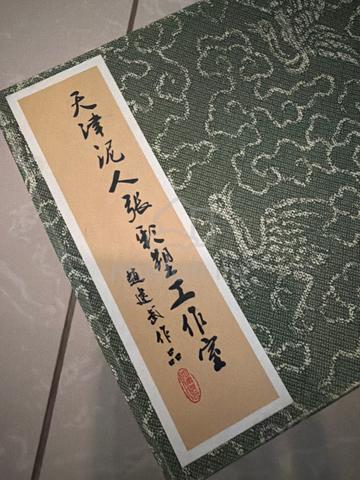 天津泥人張彩塑工作室
趙建武作品